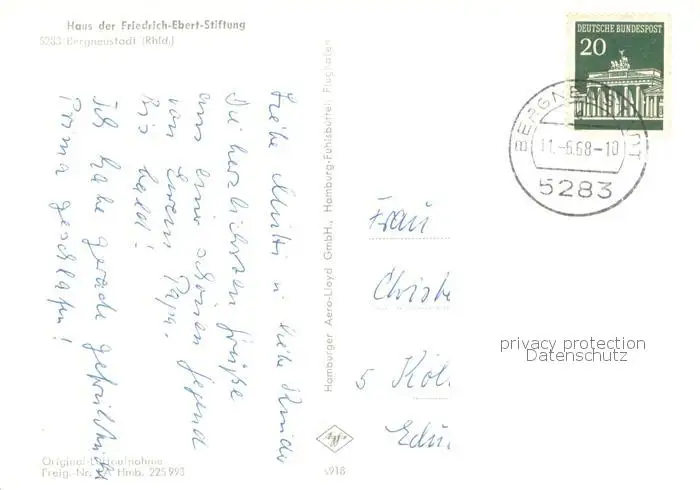 Haus der Friedrich-Ebert-Stiftung
5283 Bergneustadt (Rhld.)
Liebe Mutti u liebe Kinder
Die herzlichsten Grüße
aus einer schönen Gegend
von Eurem Papa.
Bis bald!
Ich habe gerade gefrühstückt
Prima geschlafen!
Original-Luftaufnahme
Freig.-Nr. LA Hmb. 225 993
Hamburger Aero-Lloyd GmbH., Hamburg-Fuhlsbüttel, Flughafen
Agfa
DEUTSCHE BUNDESPOST
20
BERGNEUSTADT
11.-6.68-10
5283
Frau
Christe
5 Köl
privacy protection
Datenschutz